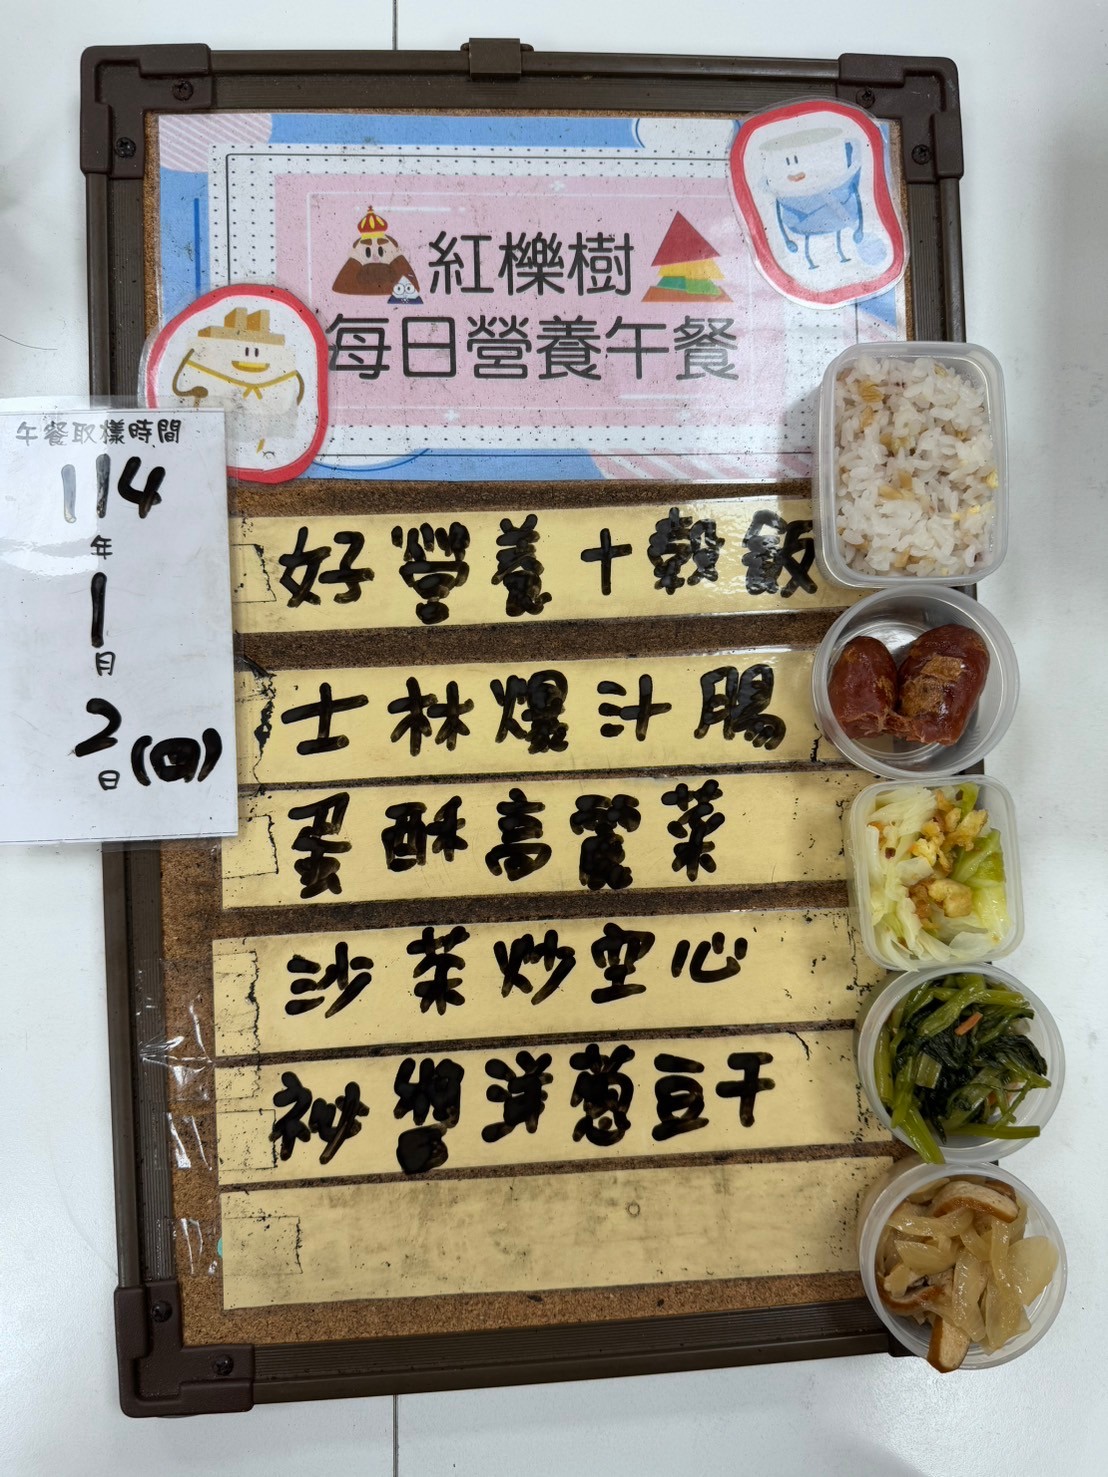 紅櫟樹
每日營養午餐
午餐取樣時間
114
年
1
月
2
日(四)
好營養十穀飯
士林爆汁腸
蛋酥高麗菜
沙茶炒空心
祕醬洋蔥豆干